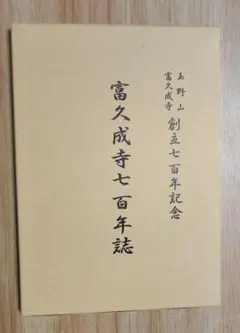 玉野山
富久成寺
創立七百年記念
富久成寺七百年誌